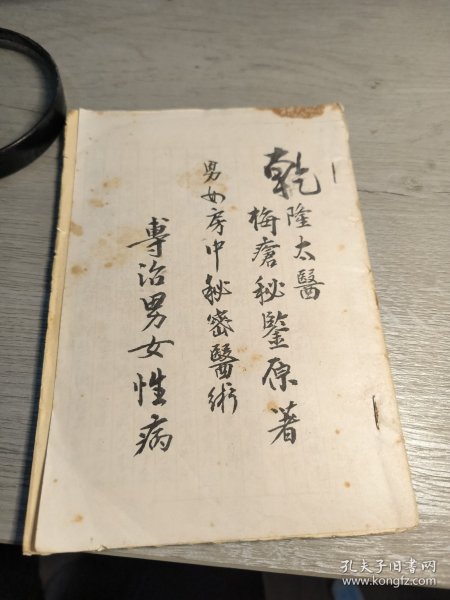 乾隆太醫
梅瘡秘鑒原著
男女房中秘密醫術
專治男女性病
孔夫子旧书网
www.kongfz.com